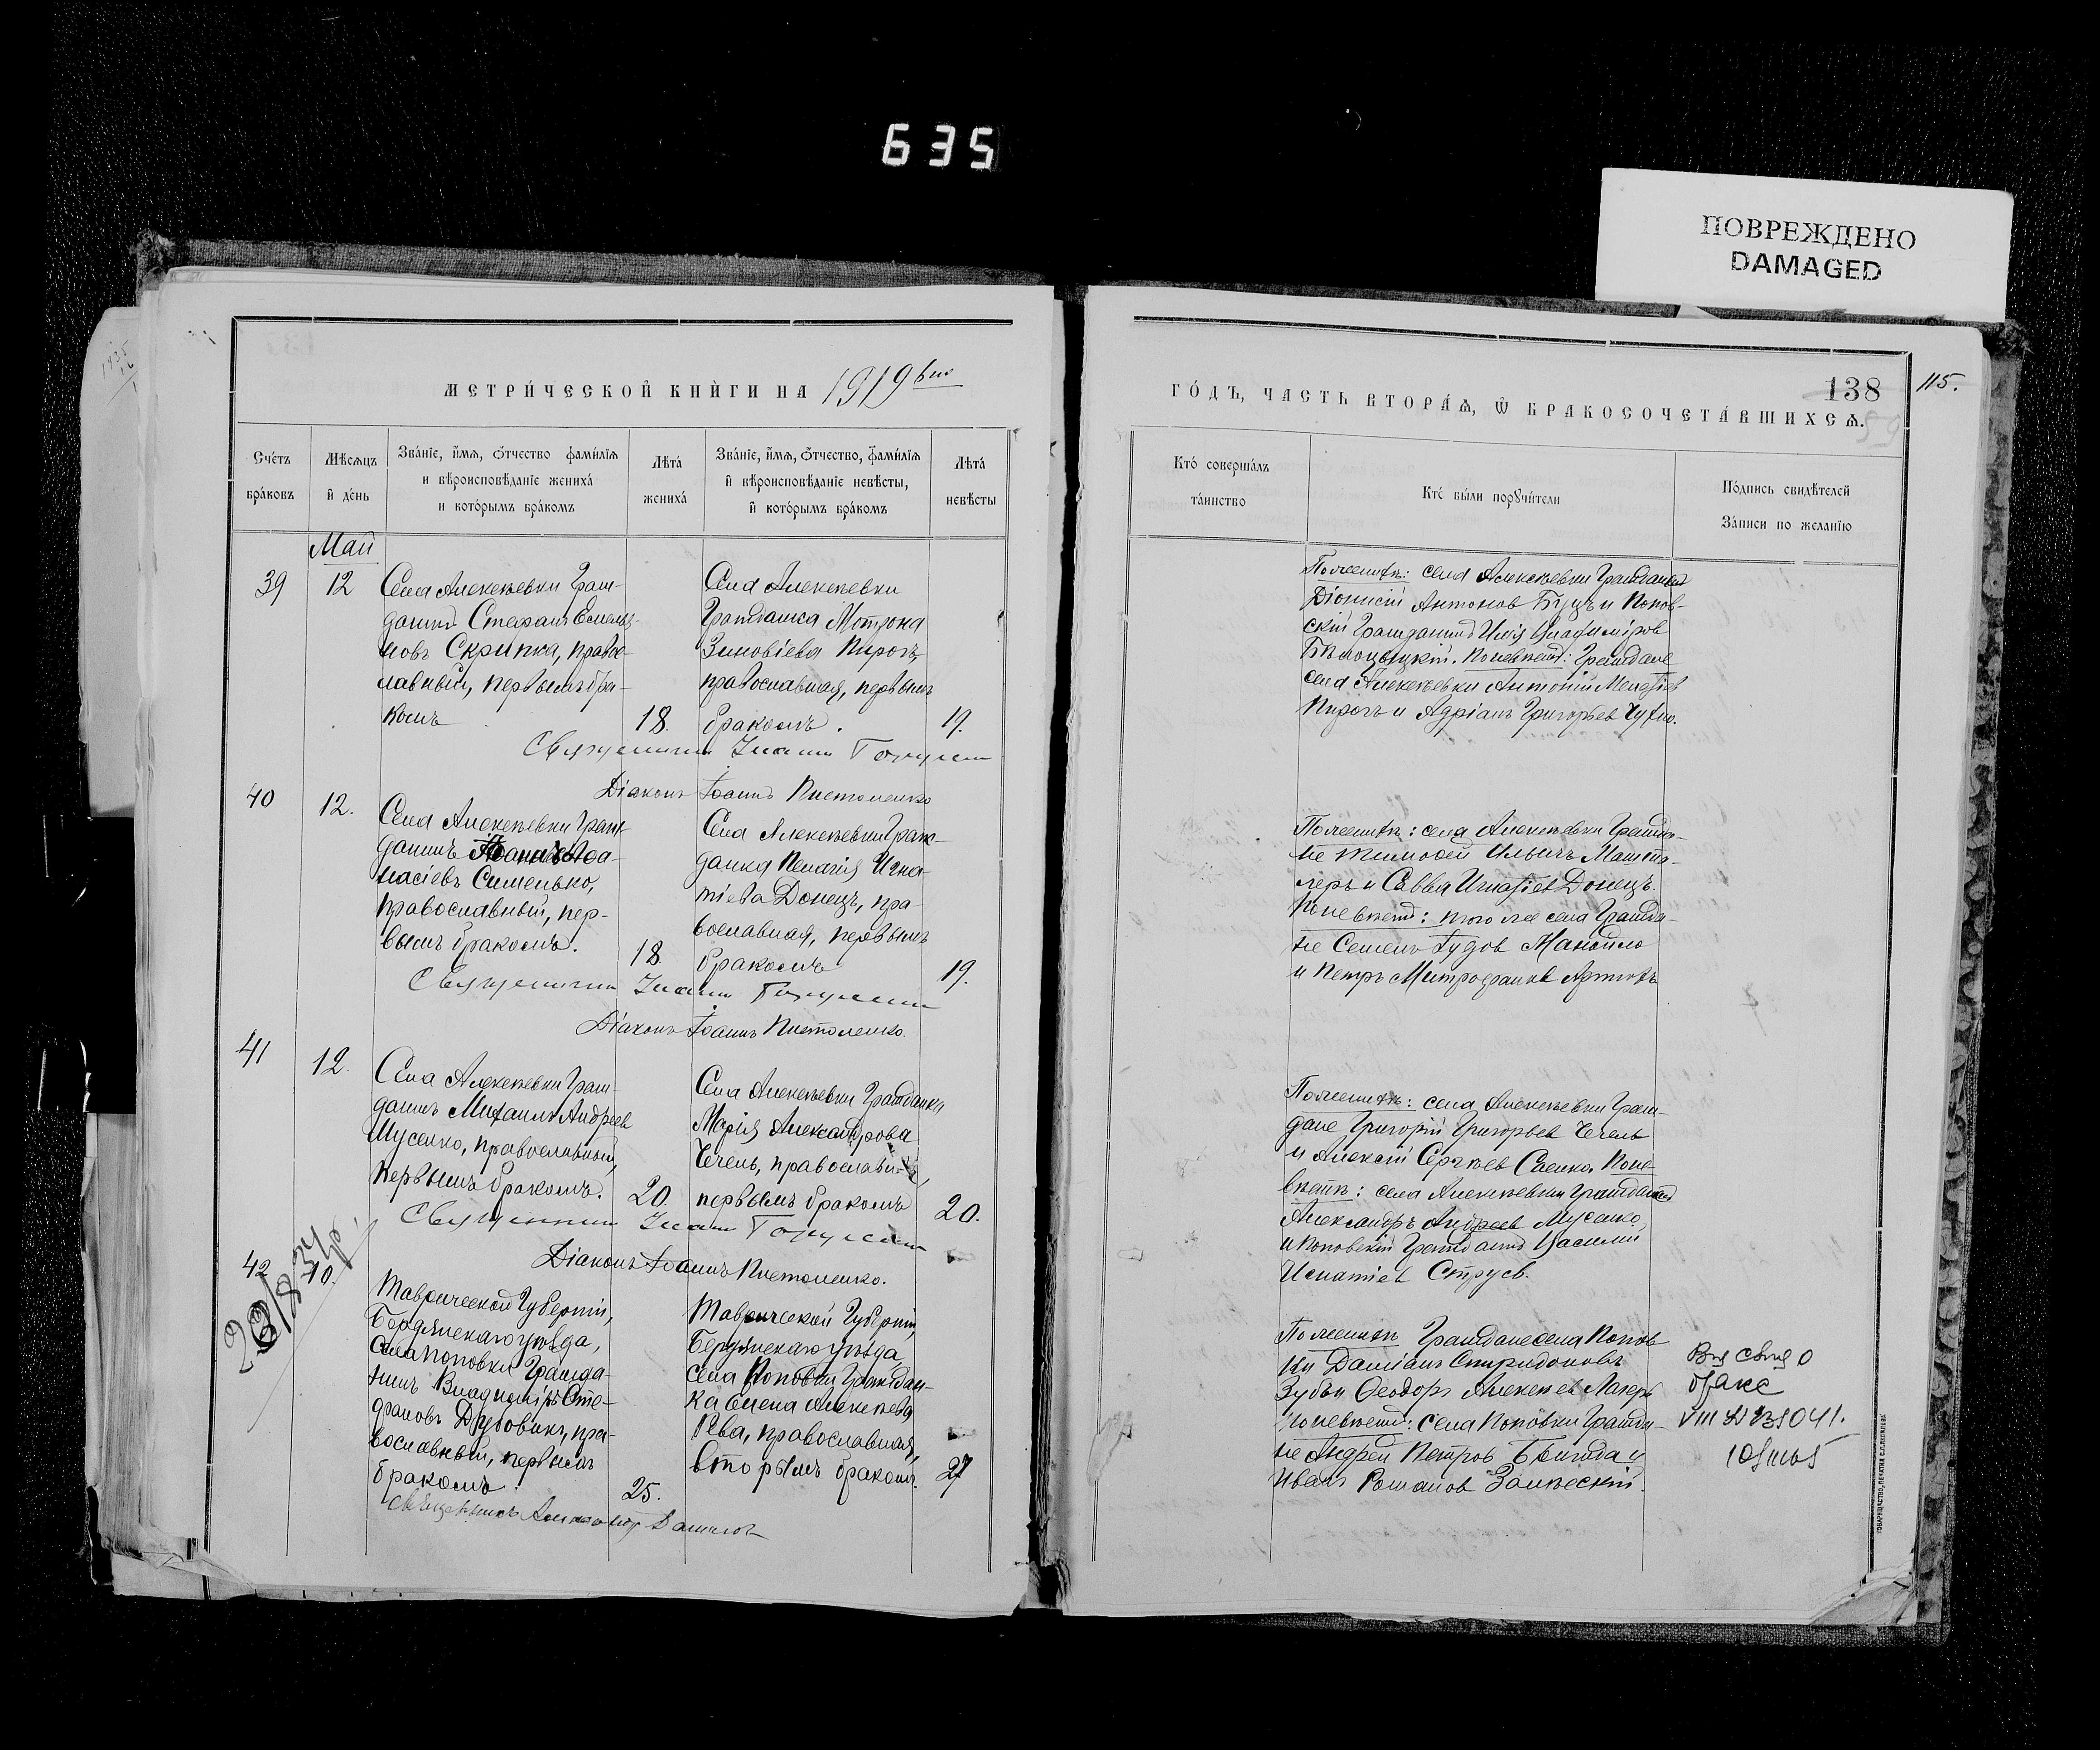 635
ПОВРЕЖДЕНО
DAMAGED
МЕТРИ́ЧЕСКОЙ КНИ́ГИ НА 1919
ГО́ДЪ, ЧАСТЬ ВТОРА́Ѧ, Ѡ҆ БРАКОСОЧЕТА́ВШИХСѦ.
138
115.
Сче́тъ
бра́ковъ
Мѣсѧцъ
и҆ де́нь
Зва́нїе, и҆́мѧ, ѻ҆́тчество фами́лїѧ
и вѣроисповѣ́данїе жениха́
и кото́рымъ бра́комъ
Лѣта́
жениха́
Зва́нїе, и҆́мѧ, ѻ҆́тчество, фами́лїѧ
и҆ вѣроисповѣ́данїе невѣ́сты,
и҆ кото́рымъ бра́комъ
Лѣта́
невѣ́сты
Кто̀ соверша́лъ
та́инство
Кто̀ бы́ли порꙋчи́тели
По́дпись свидѣ́телей
За́писи по жела́нїю
Май
39
12
Села Алексѣевки Граж-
данинъ Стефанъ Емелья-
новъ Скрипка, правос-
лавный, первымъ бра-
комъ
18.
Села Алексѣевки
Гражданка Мотрона
Зиновіева Пирогъ,
православная, первымъ
бракомъ.
19.
Священникъ
Діаконъ Іоаннъ Пистоленко
Поженихѣ: села Алексѣевки Гражданинъ
Діонисій Антоновъ Буцъ и Попов-
скій Гражданинъ Илія Владиміровъ
Поневѣстѣ: Граждане
села Алексѣевки Антоній
Пирогъ и Адріанъ Григорьев
40
12.
Села Алексѣевки Граж-
данинъ
насіевъ Сименько,
православный, пер-
вымъ бракомъ.
18
Села Алексѣевки Граж-
данка Пелагія Игна-
тіева Донецъ, пра-
вославная, первымъ
бракомъ
19.
Священникъ
Діаконъ Іоаннъ Пистоленко.
Поженихѣ: села Алексѣевки Гражда-
не Тимофей Ильичъ
и Савва Игнатіев Донецъ.
Поневѣстѣ: того же села Гражда-
не Семенъ Іудов Манойло
и Петръ Митрофанов
41
12.
Села Алексѣевки Граж-
данинъ Михаилъ Андреев
Мусенко, православный,
первымъ бракомъ.
20.
Села Алексѣевки Гражданка
Марія Александрова
Чечель, православная,
первымъ бракомъ
20.
Священникъ
Діаконъ Іоаннъ Пистоленко.
Поженихѣ: села Алексѣевки Граж-
дане Григорій Григорьев Чечель
и Алексій Сергѣев Саенко. Поне-
вѣстѣ: села Алексѣевки Гражданинъ
Александръ Андреев Мусенко,
и Поповскій Гражданинъ Василій
Игнатіев Струсь.
42
10.
Таврической Губерніи,
Бердянскаго уѣзда,
села Поповки Гражда-
нинъ Владиміръ Сте-
фановъ Дубовикъ, пра-
вославный, первымъ
бракомъ
25.
Таврической Губерніи,
Бердянскаго уѣзда
села Поповки Граждан-
ка Елена Алексѣева
Рева, православная,
вторымъ бракомъ.
27
Священникъ Александръ
Поженихѣ Граждане села Попов-
ки Даміанъ Спиридоновъ
Зубъ и Ѳеодоръ Алексѣев Лазеръ
поневѣстѣ: села Поповки Гражда-
не Андрей Петров
Иванъ Романов
о
браке